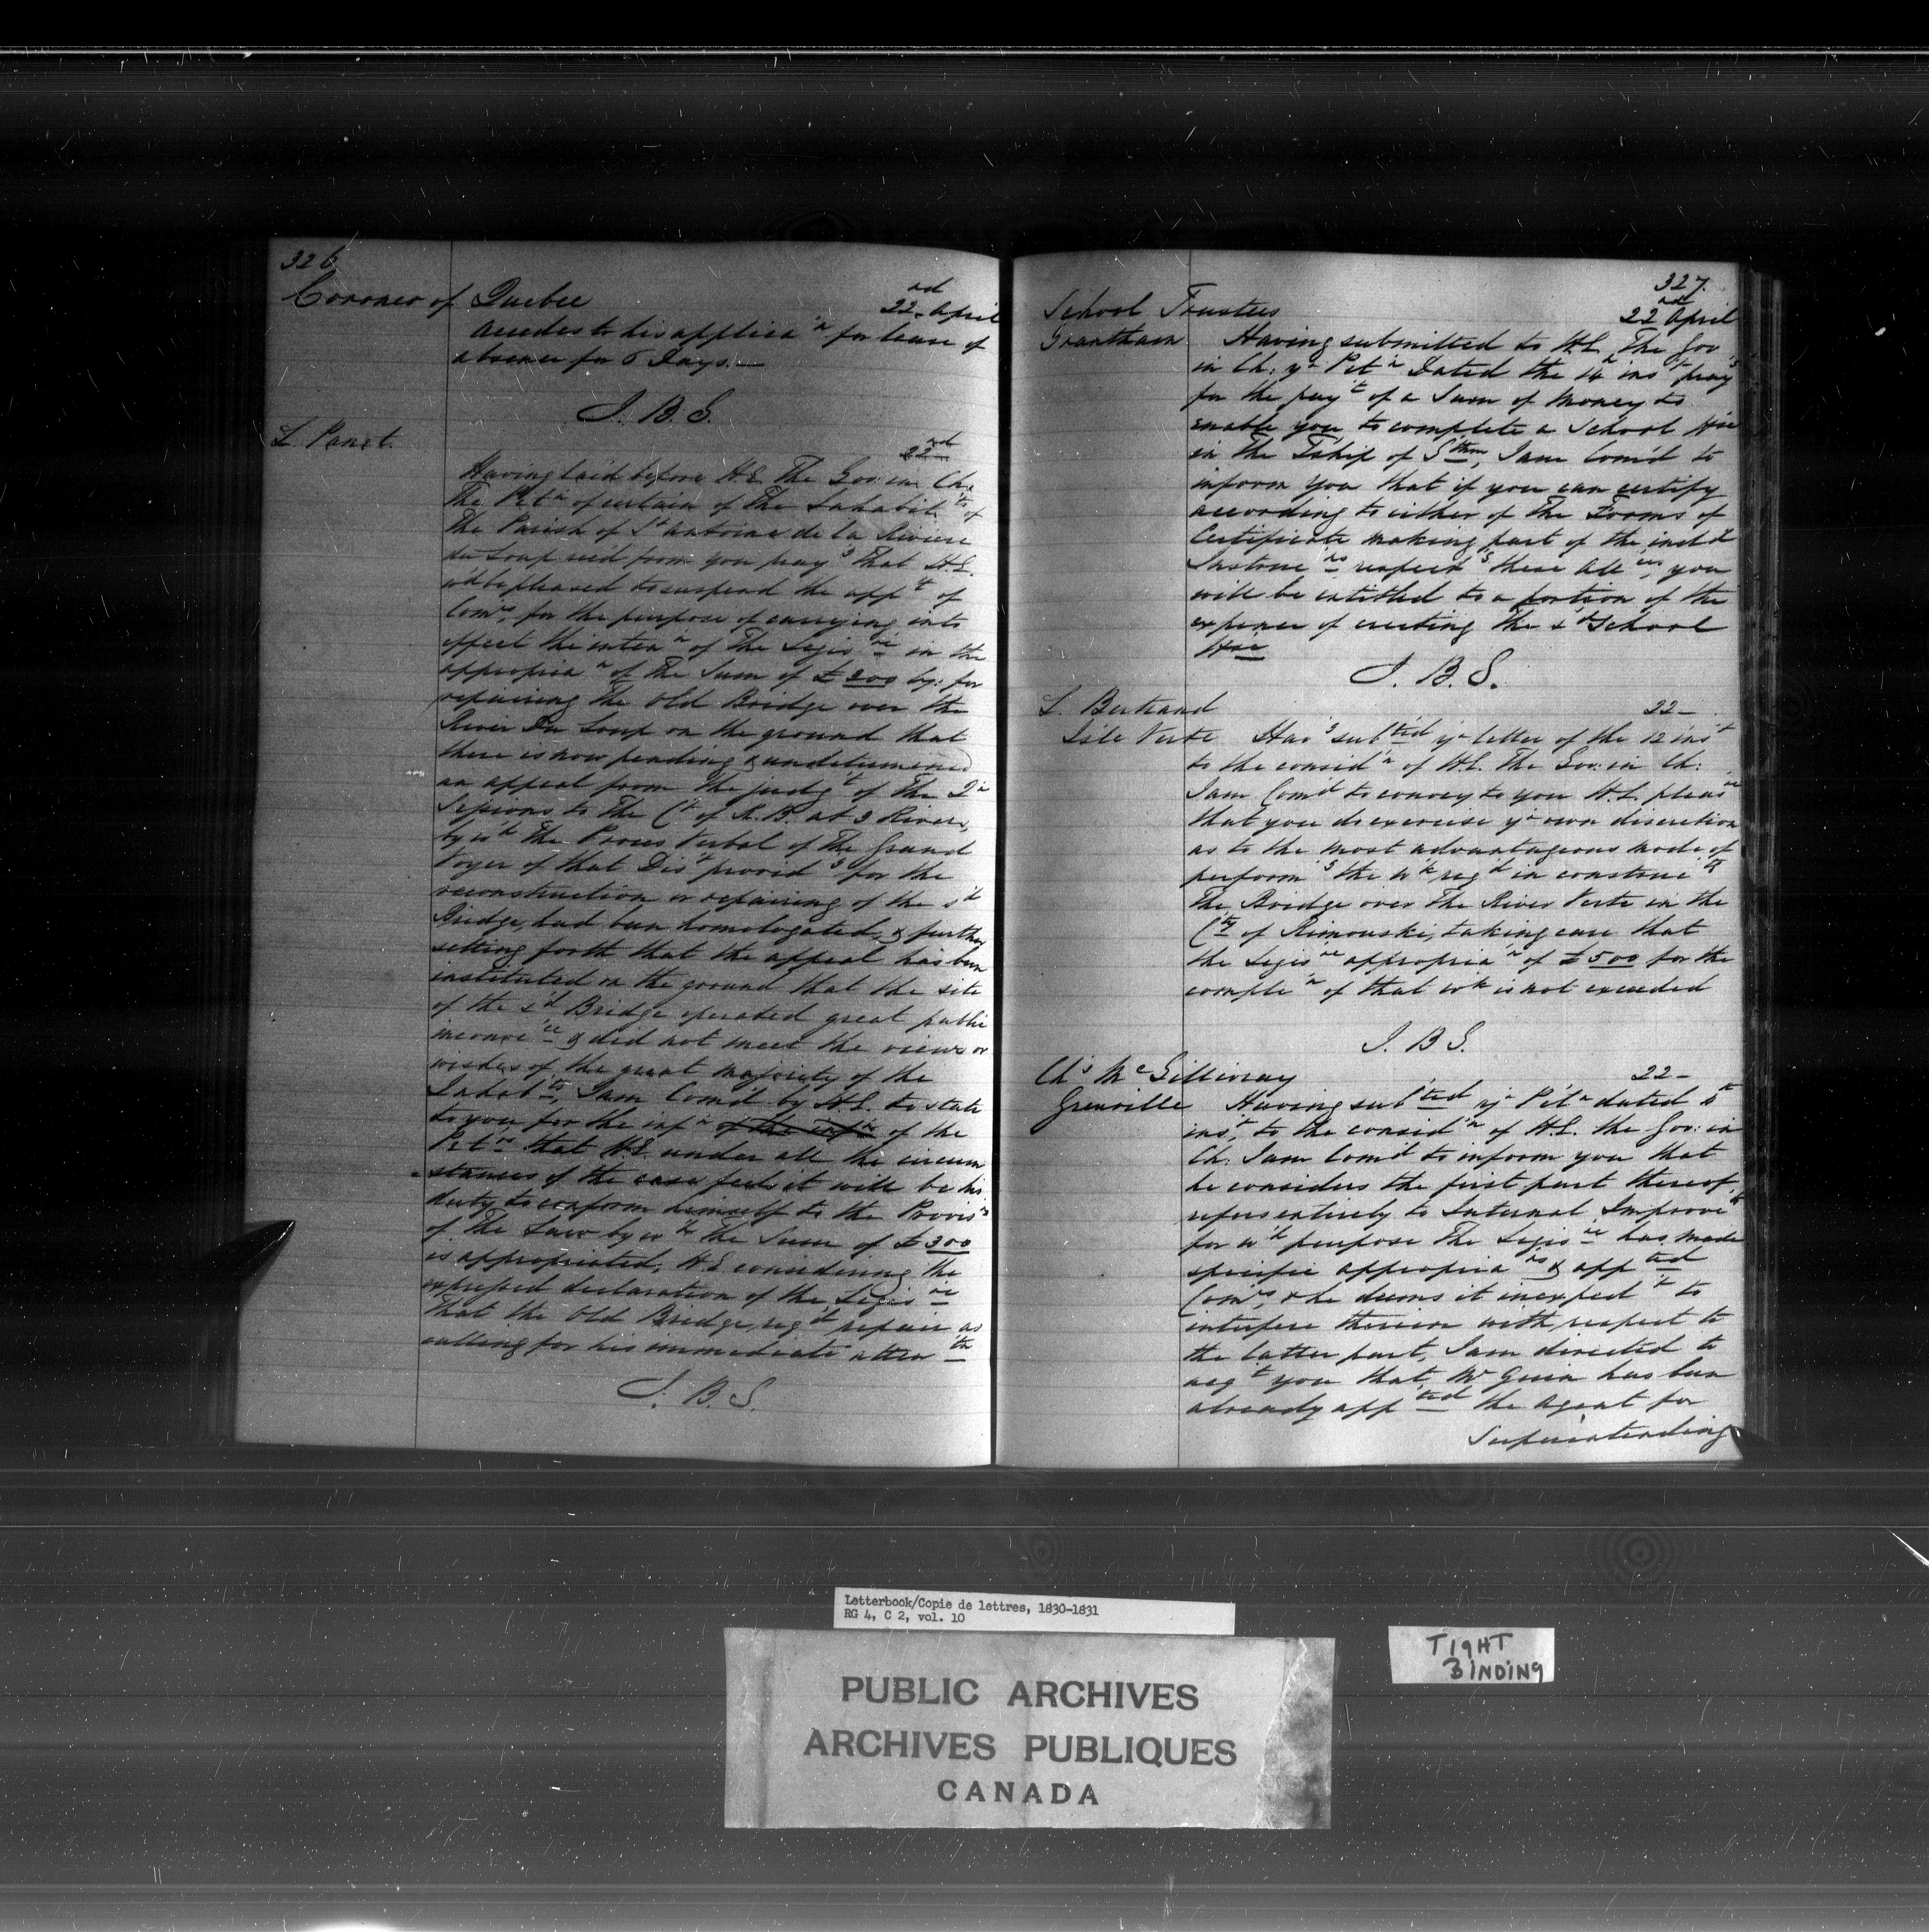 326
Coroner of Quebec
22nd April
accedes to his applica'n for leave of
absence for 6 Days. —
J. B. S.
L. Panet.
22nd
Having laid before H.E. The Gov: in Ch:
The Pet'n of certain of The Inhabit'ts of
The Parish of St Antoine de la Riviere
du Loup rec'd from you pray'g that H.E.
w'd be pleased to suspend the app't of
Com'rs, for the purpose of carrying into
effect the inten'n of The Legis're in the
appropria'n of the Sum of £300 by: for
repairing the Old Bridge over the
River Du Loup on the ground that
there is now pending & undetermined
an appeal from the judg't of The Qr
Sessions to The Ct of K.B. at 3 Rivers,
by wh The Proces Verbal of The Grand
Voyer of that Dis't provid'g for the
reconstruction or repairing of the s'd
Bridge, had been homologated, & further
setting forth that the appeal has been
instituted on the ground that the site
of the s'd Bridge operated great public
inconve'ce & did not meet the views or
wishes of the great majority of the
Inhab'ts, I am Com'd by H.E. to state
to you for the inf'n of the inf'n of the
Pet'rs that H.E. under all the circum
-stances of the case feels it will be his
duty to conform himself to the Provis'ns
of The Law by wh The Sum of £300
is appropriated, H.E. considering the
expressed declaration of the Legis're
that the Old Bridge req'd repair as
calling for his immediate atten'tn
J. B. S.
327.
School Trustees
22nd April
Grantham
Having submitted to H.E. The Gov
in Ch: yr Pet'n Dated the 14 ins't pray'g
for the pay't of a Sum of Money to
enable you to complete a School Hse
in the T'ship of G'thm, I am Com'd to
inform you that if you can certify
according to either of The Forms of
Certificate making part of the incl'd
Instruc'ns respect'g these Alle'ces, you
will be entitled to a portion of the
expence of erecting the s'd School
Hse
J. B. S.
L. Bertrand
22 —
Isle Verte
Hav'g sub'ted yr letter of the 12 ins't
to the consid'n of H.E. The Gov: in Ch:
I am Com'd to convey to you H.E. pleas're
that you do exercise yr own discretion
as to the most advantageous mode of
perform'g the w'k req'd in construc'tg
The Bridge over The River Verte in the
Cty of Rimouski, taking care that
the Legis've appropria'n of £500 for the
comple'n of that w'k is not exceeded
J. B. S.
Chs McGillivray
22 —
Grenville
Having sub'ted yr Pet'n dated 5th
ins't, to the consid'n of H.E. the Gov: in
Ch: I am Com'd to inform you that
he considers the first part thereof,
refers entirely to Internal Improve'ts
for wh purpose The Legis're has made
specific appropria'ns & app'ted
Com'rs, & he deems it inexped't to
interfere therein with respect to
the latter part, I am directed to
acq't you that Mr Guin has been
already app'ted the Agent for
Superintending
Letterbook/Copie de lettres, 1830-1831
RG 4, C 2, vol. 10
TIGHT
BINDING
PUBLIC ARCHIVES
ARCHIVES PUBLIQUES
CANADA